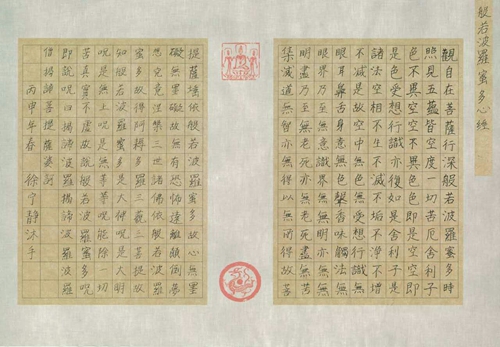 般若波羅蜜多心經
觀自在菩薩行深般若波羅蜜多時
照見五蘊皆空度一切苦厄舍利子
色不異空空不異色色即是空空即
是色受想行識亦復如是舍利子是
諸法空相不生不滅不垢不淨不增
不減是故空中無色無受想行識無
眼耳鼻舌身意無色聲香味觸法無
眼界乃至無意識界無無明亦無無
明盡乃至無老死亦無老死盡無苦
集滅道無智亦無得以無所得故菩
提薩埵依般若波羅蜜多故心無罣
礙無罣礙故無有恐怖遠離顛倒夢
想究竟涅槃三世諸佛依般若波羅
蜜多故得阿耨多羅三藐三菩提故
知般若波羅蜜多是大神呪是大明
呪是無上呪是無等等呪能除一切
苦真實不虛故說般若波羅蜜多呪
即說呪曰揭諦揭諦波羅揭諦波羅
僧揭諦菩提薩婆訶
丙申年春 徐宁静沐手